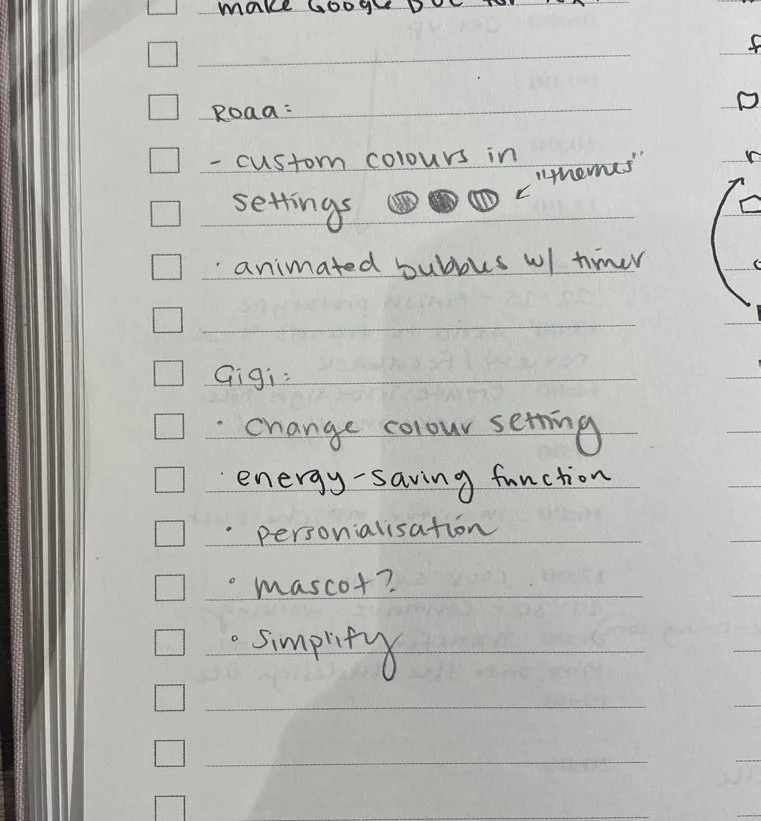 make Google Doc for
Roaa:
- custom colours in
"themes"
settings
· animated bubbles w/ timer
Gigi:
· change colour setting
· energy-saving function
· personialisation
· mascot?
· simplify